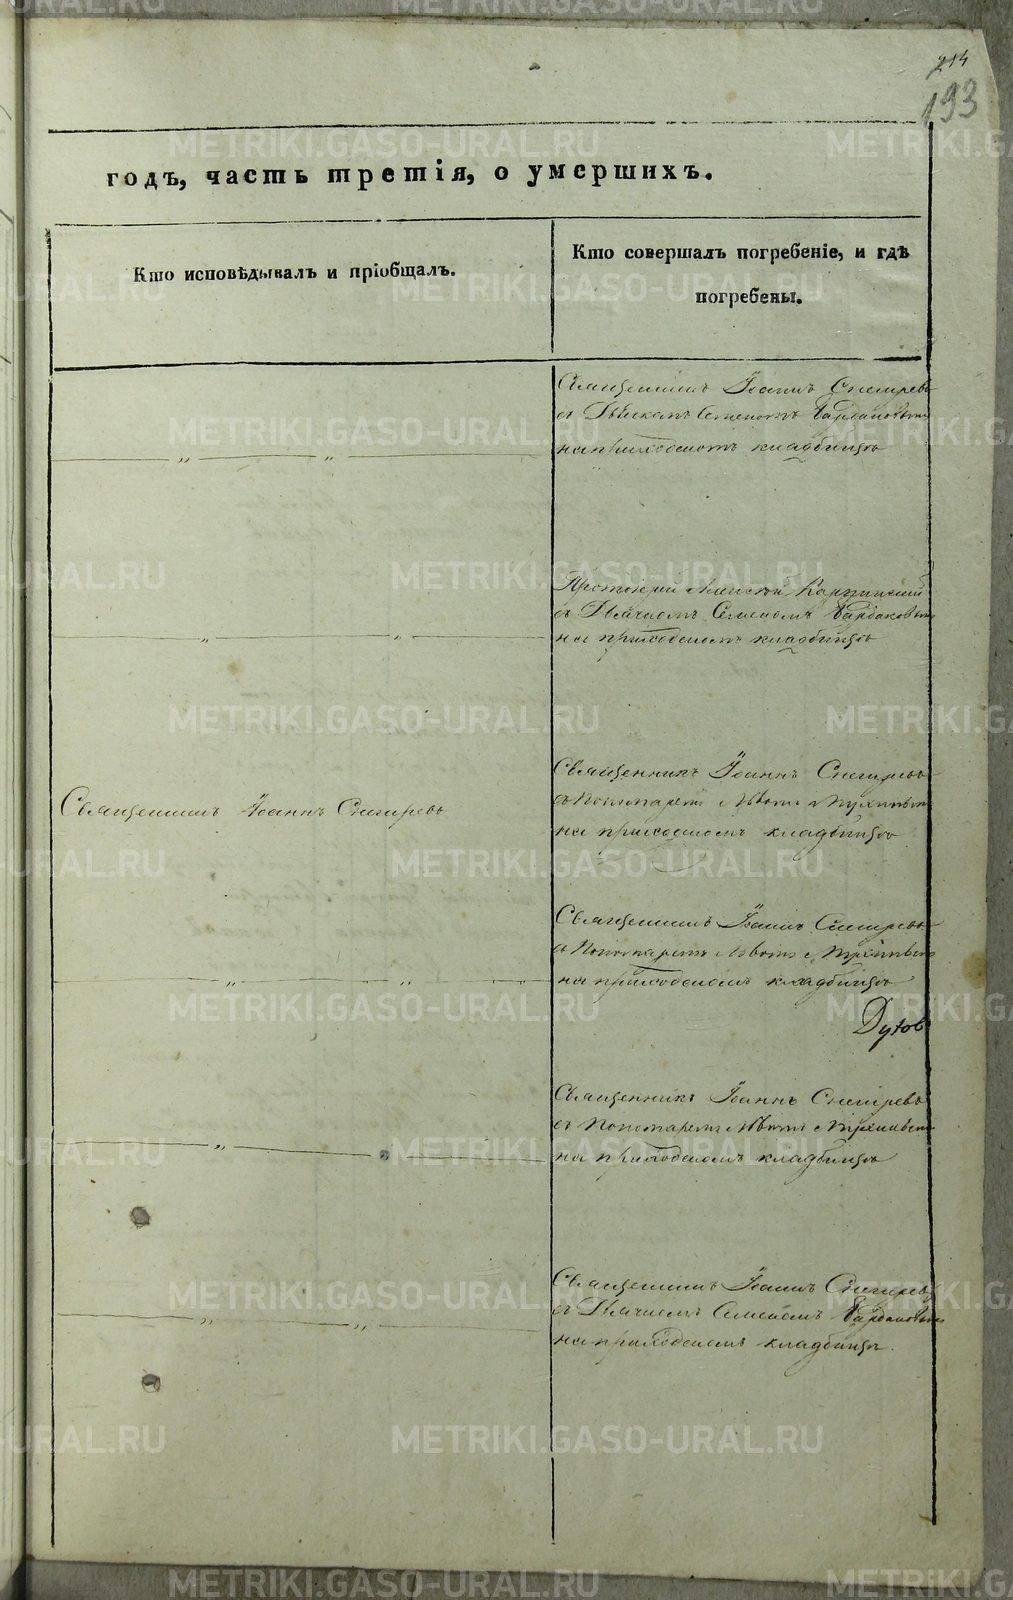 214
193
годъ, часть третія, о умершихъ.
Кто исповѣдывалъ и пріобщалъ.
Кто совершалъ погребеніе, и гдѣ
погребены.
Священникъ Іоаннъ Снегиревъ
съ Дьячкомъ Семеномъ
на приходскомъ кладбищѣ
Протоіерей Алексѣй
съ Дьячкомъ Семеномъ
на приходскомъ кладбищѣ
Священникъ Іоаннъ Снегиревъ
Священникъ Іоаннъ Снегиревъ
съ Пономаремъ
на приходскомъ кладбищѣ
Священникъ Іоаннъ Снегиревъ
съ Пономаремъ
на приходскомъ кладбищѣ
Священникъ Іоаннъ Снегиревъ
съ Пономаремъ
на приходскомъ кладбищѣ
Священникъ Іоаннъ Снегиревъ
съ Дьячкомъ Семеномъ
на приходскомъ кладбищѣ.
METRIKI.GASO-URAL.RU